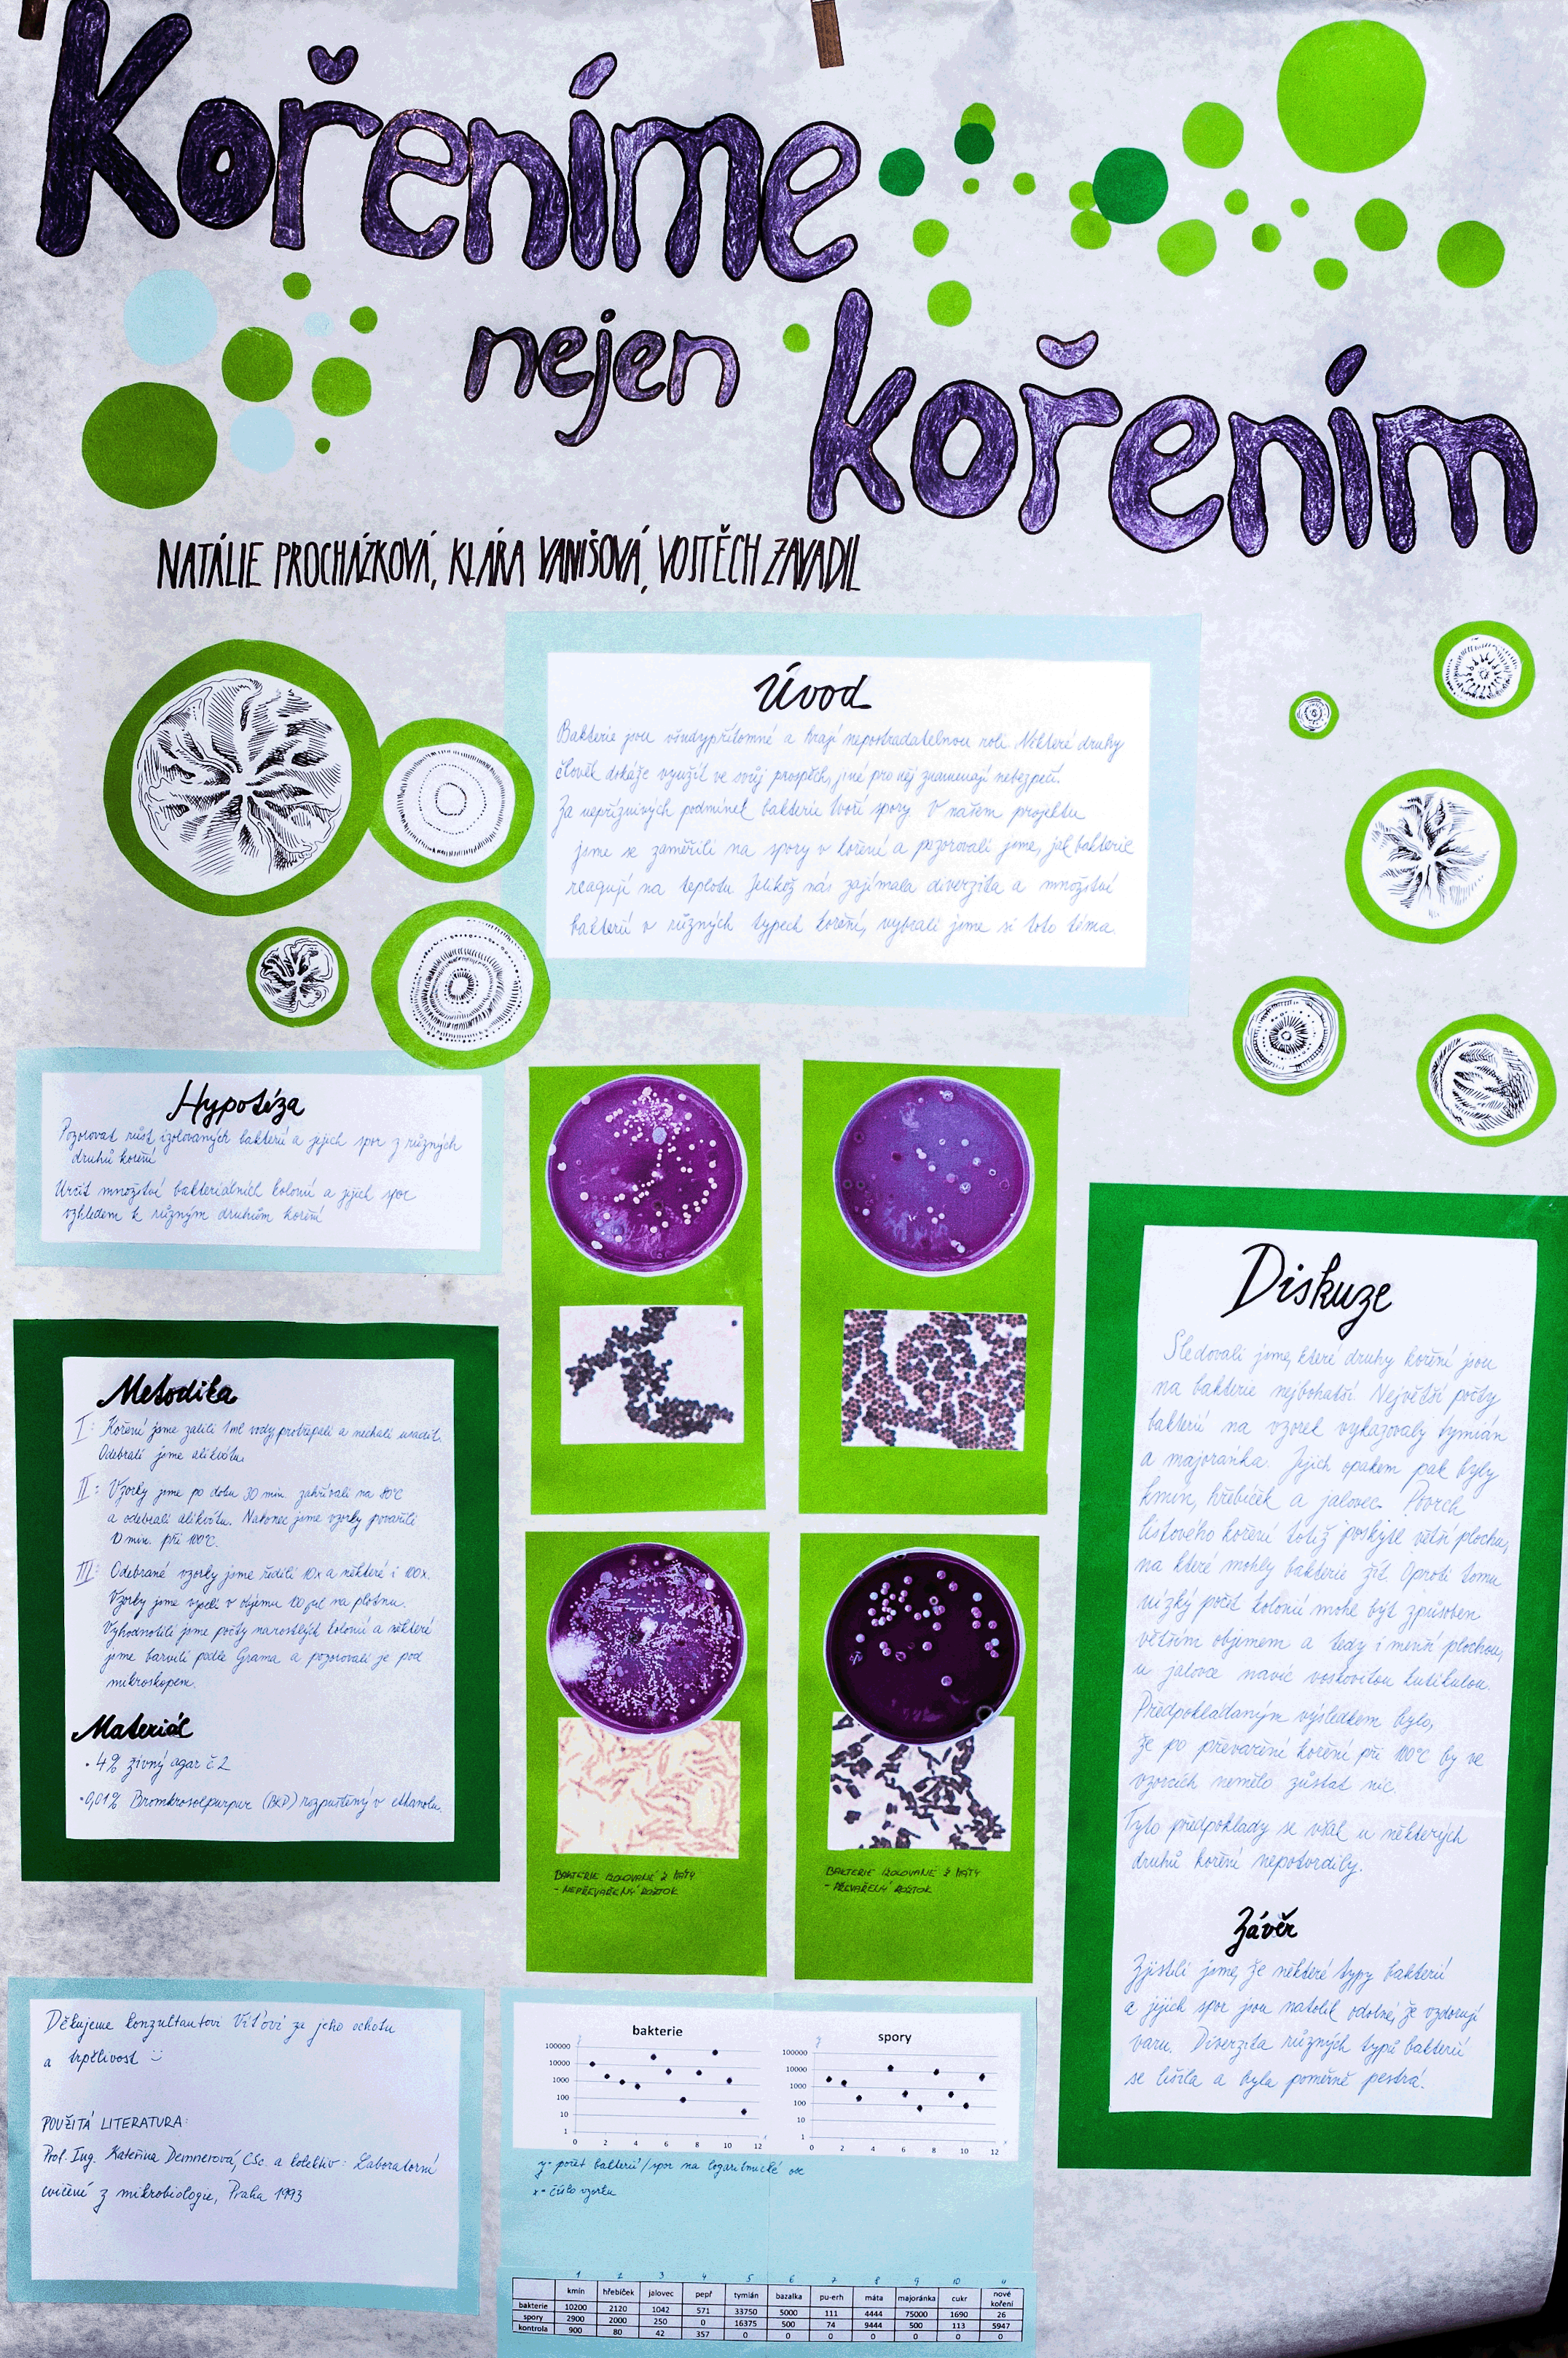 Kořeníme
nejen
kořením
NATÁLIE PROCHÁZKOVÁ, KLÁRA VANIŠOVÁ, VOJTĚCH ZAVADIL
Úvod
Bakterie jsou všudypřítomné a hrají nepostradatelnou roli. Některé druhy
člověk dokáže využít ve svůj prospěch, jiné pro něj znamenají nebezpečí.
Za nepříznivých podmínek bakterie tvoří spory. V našem projektu
jsme se zaměřili na spory v koření a pozorovali jsme, jak bakterie
reagují na teplotu. Jelikož nás zajímala diverzita a množství
bakterií v různých typech koření, vybrali jsme si toto téma.
Hypotéza
Pozorovat růst izolovaných bakterií a jejich spor z různých
druhů koření
Určit množství bakteriálních kolonií a jejich spor
vzhledem k různým druhům koření
Metodika
I: Koření jsme zalili 1ml vody, protřepali a nechali usadit.
Odebrali jsme alikvótu.
II: Vzorky jsme po dobu 30 min. zahřívali na 80°C
a odebrali alikvótu. Nakonec jsme vzorky povařili
10 min. při 100°C.
III: Odebrané vzorky jsme ředili 10x a některé i 100x.
Vzorky jsme vyseli v objemu 100 µl na plotnu.
Vyhodnotili jsme počty narostlých kolonií a některé
jsme barvili podle Grama a pozorovali je pod
mikroskopem.
Materiál
• 4% živný agar č.2
• 0,01% Bromkresolpurpur (BKP) rozpuštěný v ethanolu.
BAKTERIE IZOLOVANÉ Z MÁTY
- NEPŘEVAŘENÝ ROZTOK
BAKTERIE IZOLOVANÉ Z MÁTY
- PŘEVAŘENÝ ROZTOK
Diskuze
Sledovali jsme, které druhy koření jsou
na bakterie nejbohatší. Největší počty
bakterií na vzorek vykazovaly tymián
a majoránka. Jejich opakem pak byly
kmín, hřebíček a jalovec. Povrch
listového koření totiž poskytl větší plochu,
na které mohly bakterie žít. Oproti tomu
nízký počet kolonií mohl být způsoben
větším objemem a tedy i menší plochou,
u jalovce navíc voskovitou kutikulou.
Předpokládaným výsledkem bylo,
že po převaření koření při 100°C by ve
vzorcích nemělo zůstat nic.
Tyto předpoklady se však u některých
druhů koření nepotvrdily.
Závěr
Zjistili jsme, že některé typy bakterií
a jejich spor jsou natolik odolné, že vzdorují
varu. Diverzita různých typů bakterií
se lišila a byla poměrně pestrá.
Děkujeme konzultantovi Víťovi za jeho ochotu
a trpělivost :)
POUŽITÁ LITERATURA:
Prof. Ing. Kateřina Demnerová, CSc. a kolektiv: Laboratorní
cvičení z mikrobiologie, Praha 1993
y
bakterie
100000
10000
1000
100
10
1
0 2 4 6 8 10 12
x
y
spory
100000
10000
1000
100
10
1
0 2 4 6 8 10 12
x
y- počet bakterií/spor na logaritmické ose
x- číslo vzorku
1 2 3 4 5 6 7 8 9 10 11
kmín hřebíček jalovec pepř tymián bazalka pu-erh máta majoránka cukr nové koření
bakterie 10200 2120 1042 571 33750 5000 111 4444 75000 1690 26
spory 2900 2000 250 0 16375 500 74 9444 500 113 5947
kontrola 900 80 42 357 0 0 0 0 0 0 0